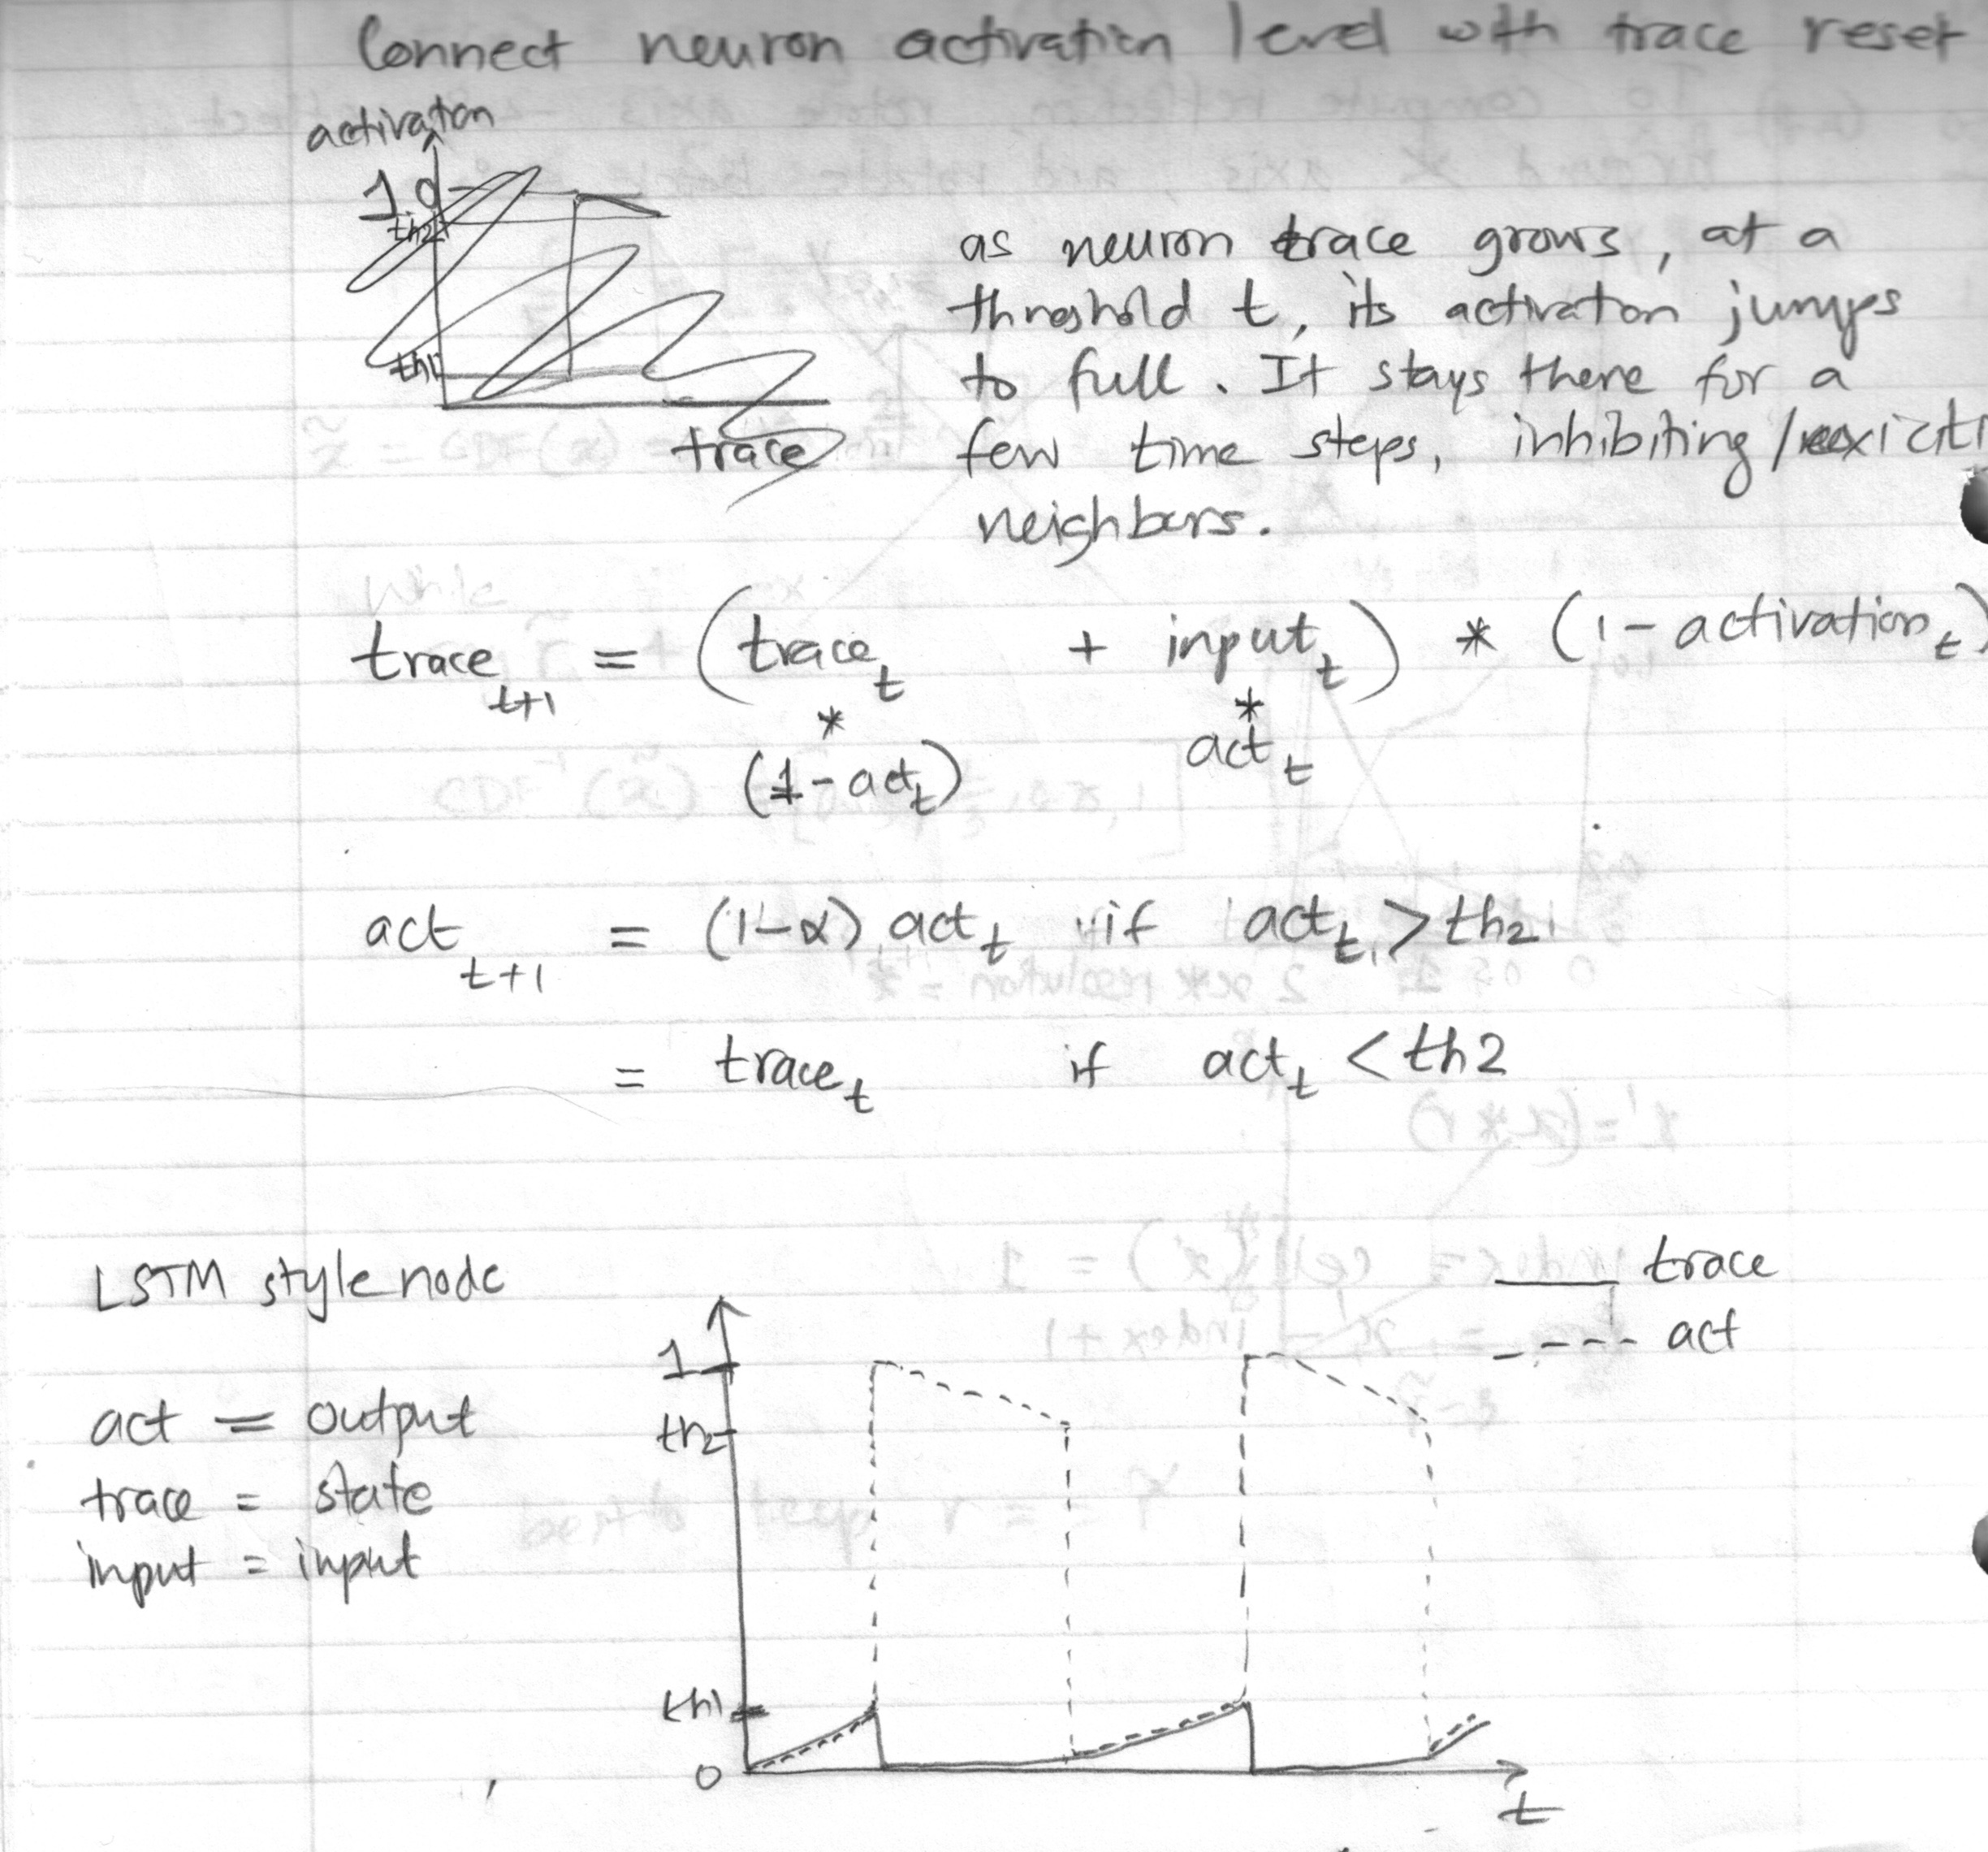 Connect neuron activation level with trace reset
activaton
1.0
th2
th1
trace
as neuron trace grows, at a
threshold t, its activaton jumps
to full. It stays there for a
few time steps, inhibiting /
neighbors.
trace_t+1 = (trace_t + input_t) * (1 - activation_t)
* *
(1 - act_t) act_t
act_t+1 = (1-α) act_t if act_t > th2
= trace_t if act_t < th2
LSTM style node
trace
act
1
act = output
th2
trace = state
input = input
th1
0
t